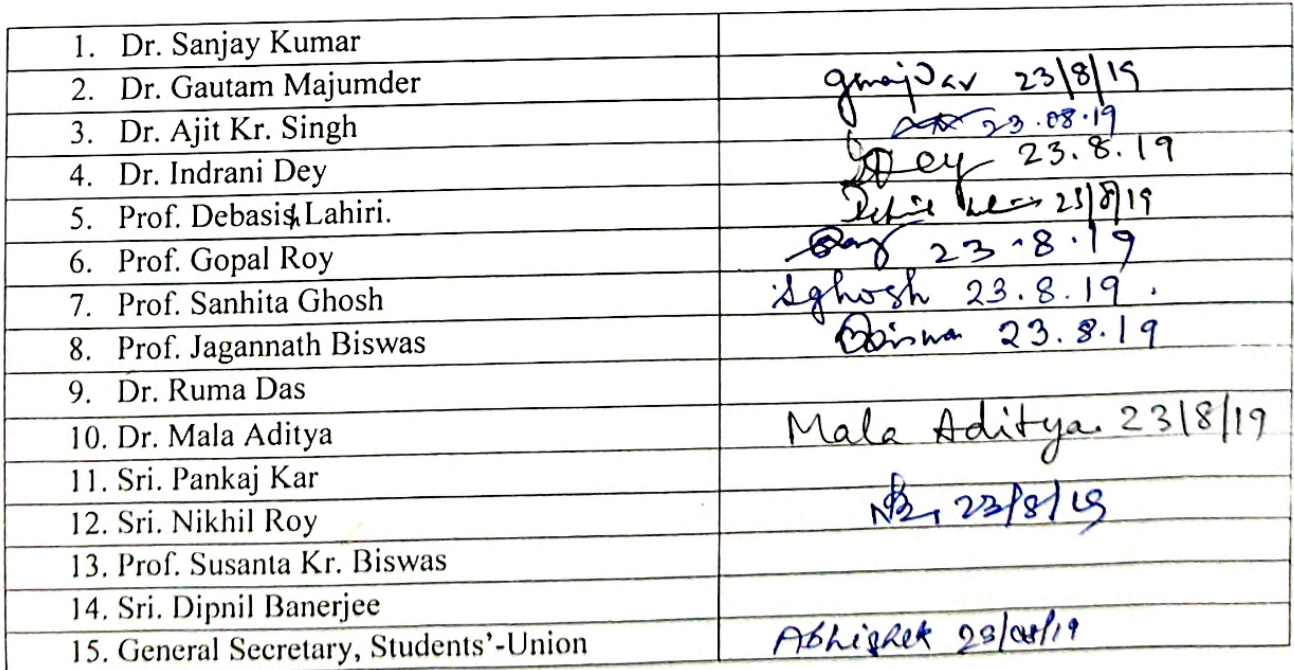 1. Dr. Sanjay Kumar
2. Dr. Gautam Majumder 23/8/19
3. Dr. Ajit Kr. Singh 23.08.19
4. Dr. Indrani Dey Dey 23.8.19
5. Prof. Debasish Lahiri. 23/8/19
6. Prof. Gopal Roy 23.8.19
7. Prof. Sanhita Ghosh SGhosh 23.8.19.
8. Prof. Jagannath Biswas 23.8.19
9. Dr. Ruma Das
10. Dr. Mala Aditya Mala Aditya. 23/8/19
11. Sri. Pankaj Kar
12. Sri. Nikhil Roy 23/8/19
13. Prof. Susanta Kr. Biswas
14. Sri. Dipnil Banerjee
15. General Secretary, Students'-Union Abhishek 23/08/19